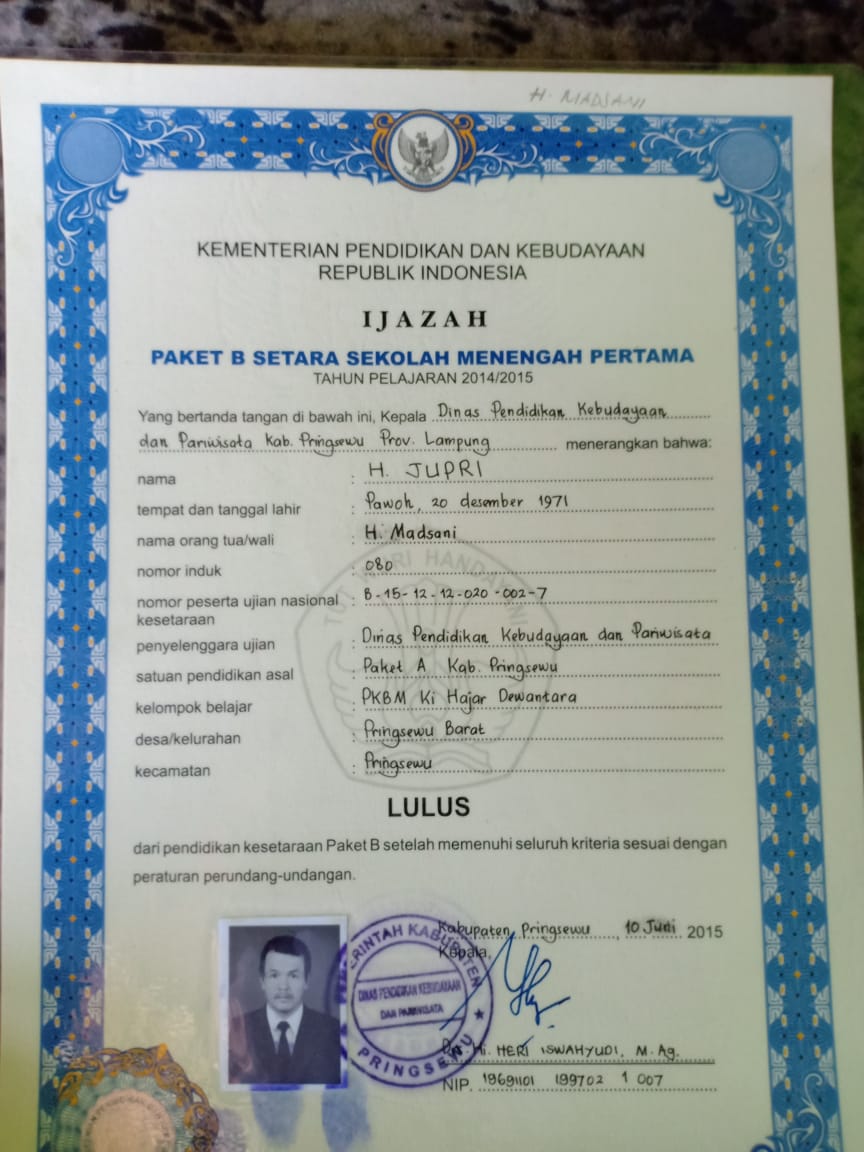 H. MADSANI
KEMENTERIAN PENDIDIKAN DAN KEBUDAYAAN
REPUBLIK INDONESIA
IJAZAH
PAKET B SETARA SEKOLAH MENENGAH PERTAMA
TAHUN PELAJARAN 2014/2015
Yang bertanda tangan di bawah ini, Kepala Dinas Pendidikan Kebudayaan
dan Pariwisata Kab. Pringsewu Prov. Lampung menerangkan bahwa:
nama : H. JUPRI
tempat dan tanggal lahir : Pawoh, 20 desember 1971
nama orang tua/wali : H. Madsani
nomor induk : 080
nomor peserta ujian nasional : B-15-12-12-020-002-7
kesetaraan
penyelenggara ujian : Dinas Pendidikan Kebudayaan dan Pariwisata
satuan pendidikan asal : Paket A Kab. Pringsewu
kelompok belajar : PKBM Ki Hajar Dewantara
desa/kelurahan : Pringsewu Barat
kecamatan : Pringsewu
TUT WURI HANDAYANI
LULUS
dari pendidikan kesetaraan Paket B setelah memenuhi seluruh kriteria sesuai dengan
peraturan perundang-undangan.
Kabupaten Pringsewu, 10 Juni 2015
Kepala,
PEMERINTAH KABUPATEN
DINAS PENDIDIKAN KEBUDAYAAN
DAN PARIWISATA
PRINGSEWU
Drs. Hi. HERI ISWAHYUDI, M.Ag.
NIP. 19691101 199702 1 007